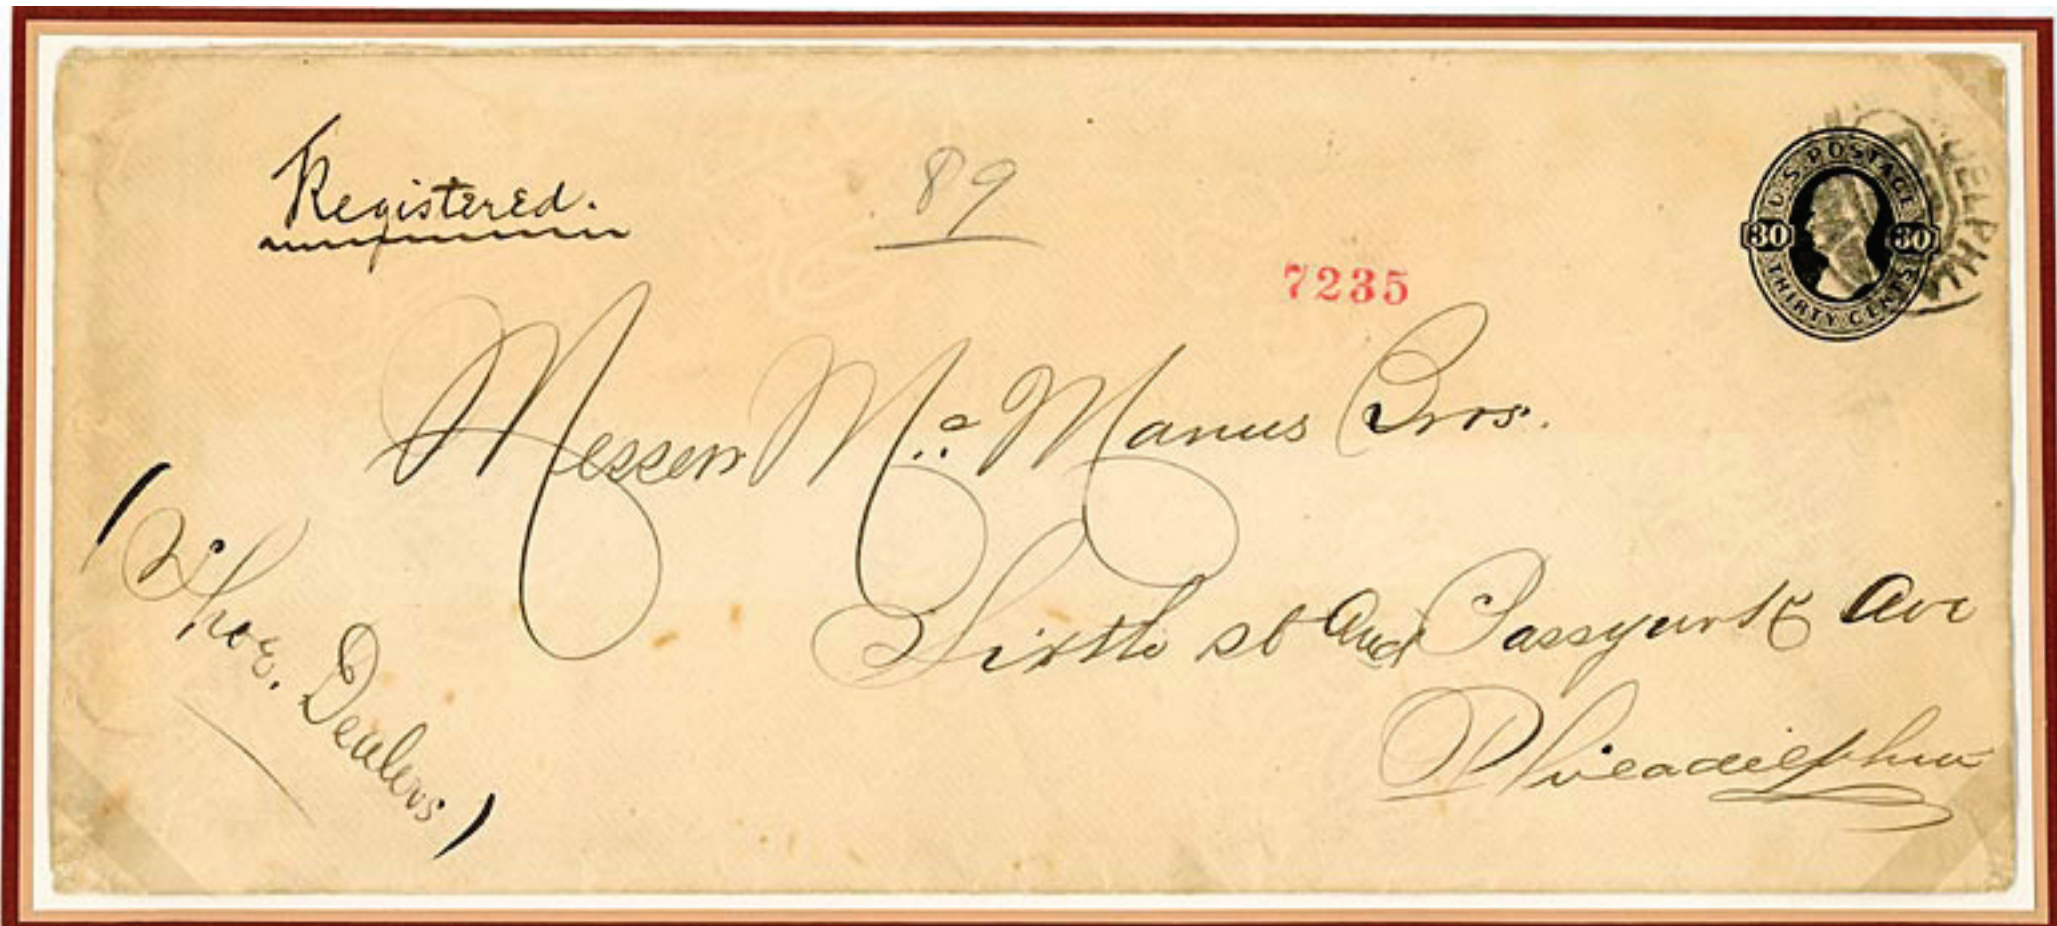 Registered.
89
7235
U.S. POSTAGE
30 30
THIRTY CENTS
DELPHIA
Messers Mc Manus Bros.
Sixth st and Passyunk Ave
Philadelphia
(Shoe. Dealers)